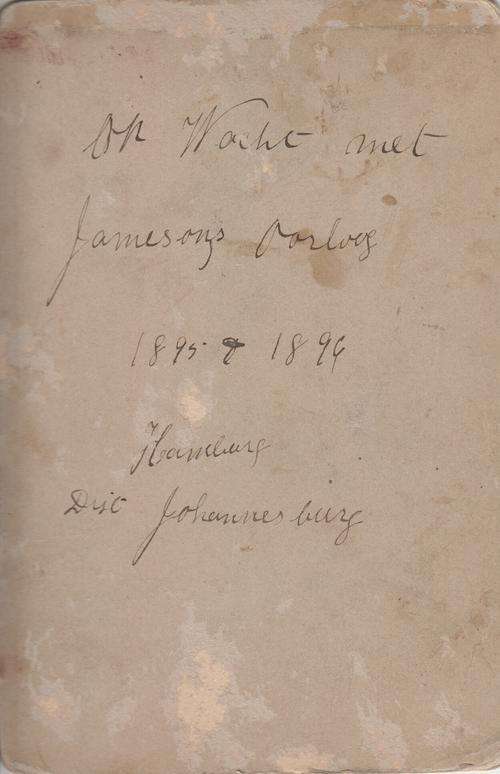 Op Wacht met
Jamesons Oorlog
1895 & 1896
Hamburg
Dist Johannesburg